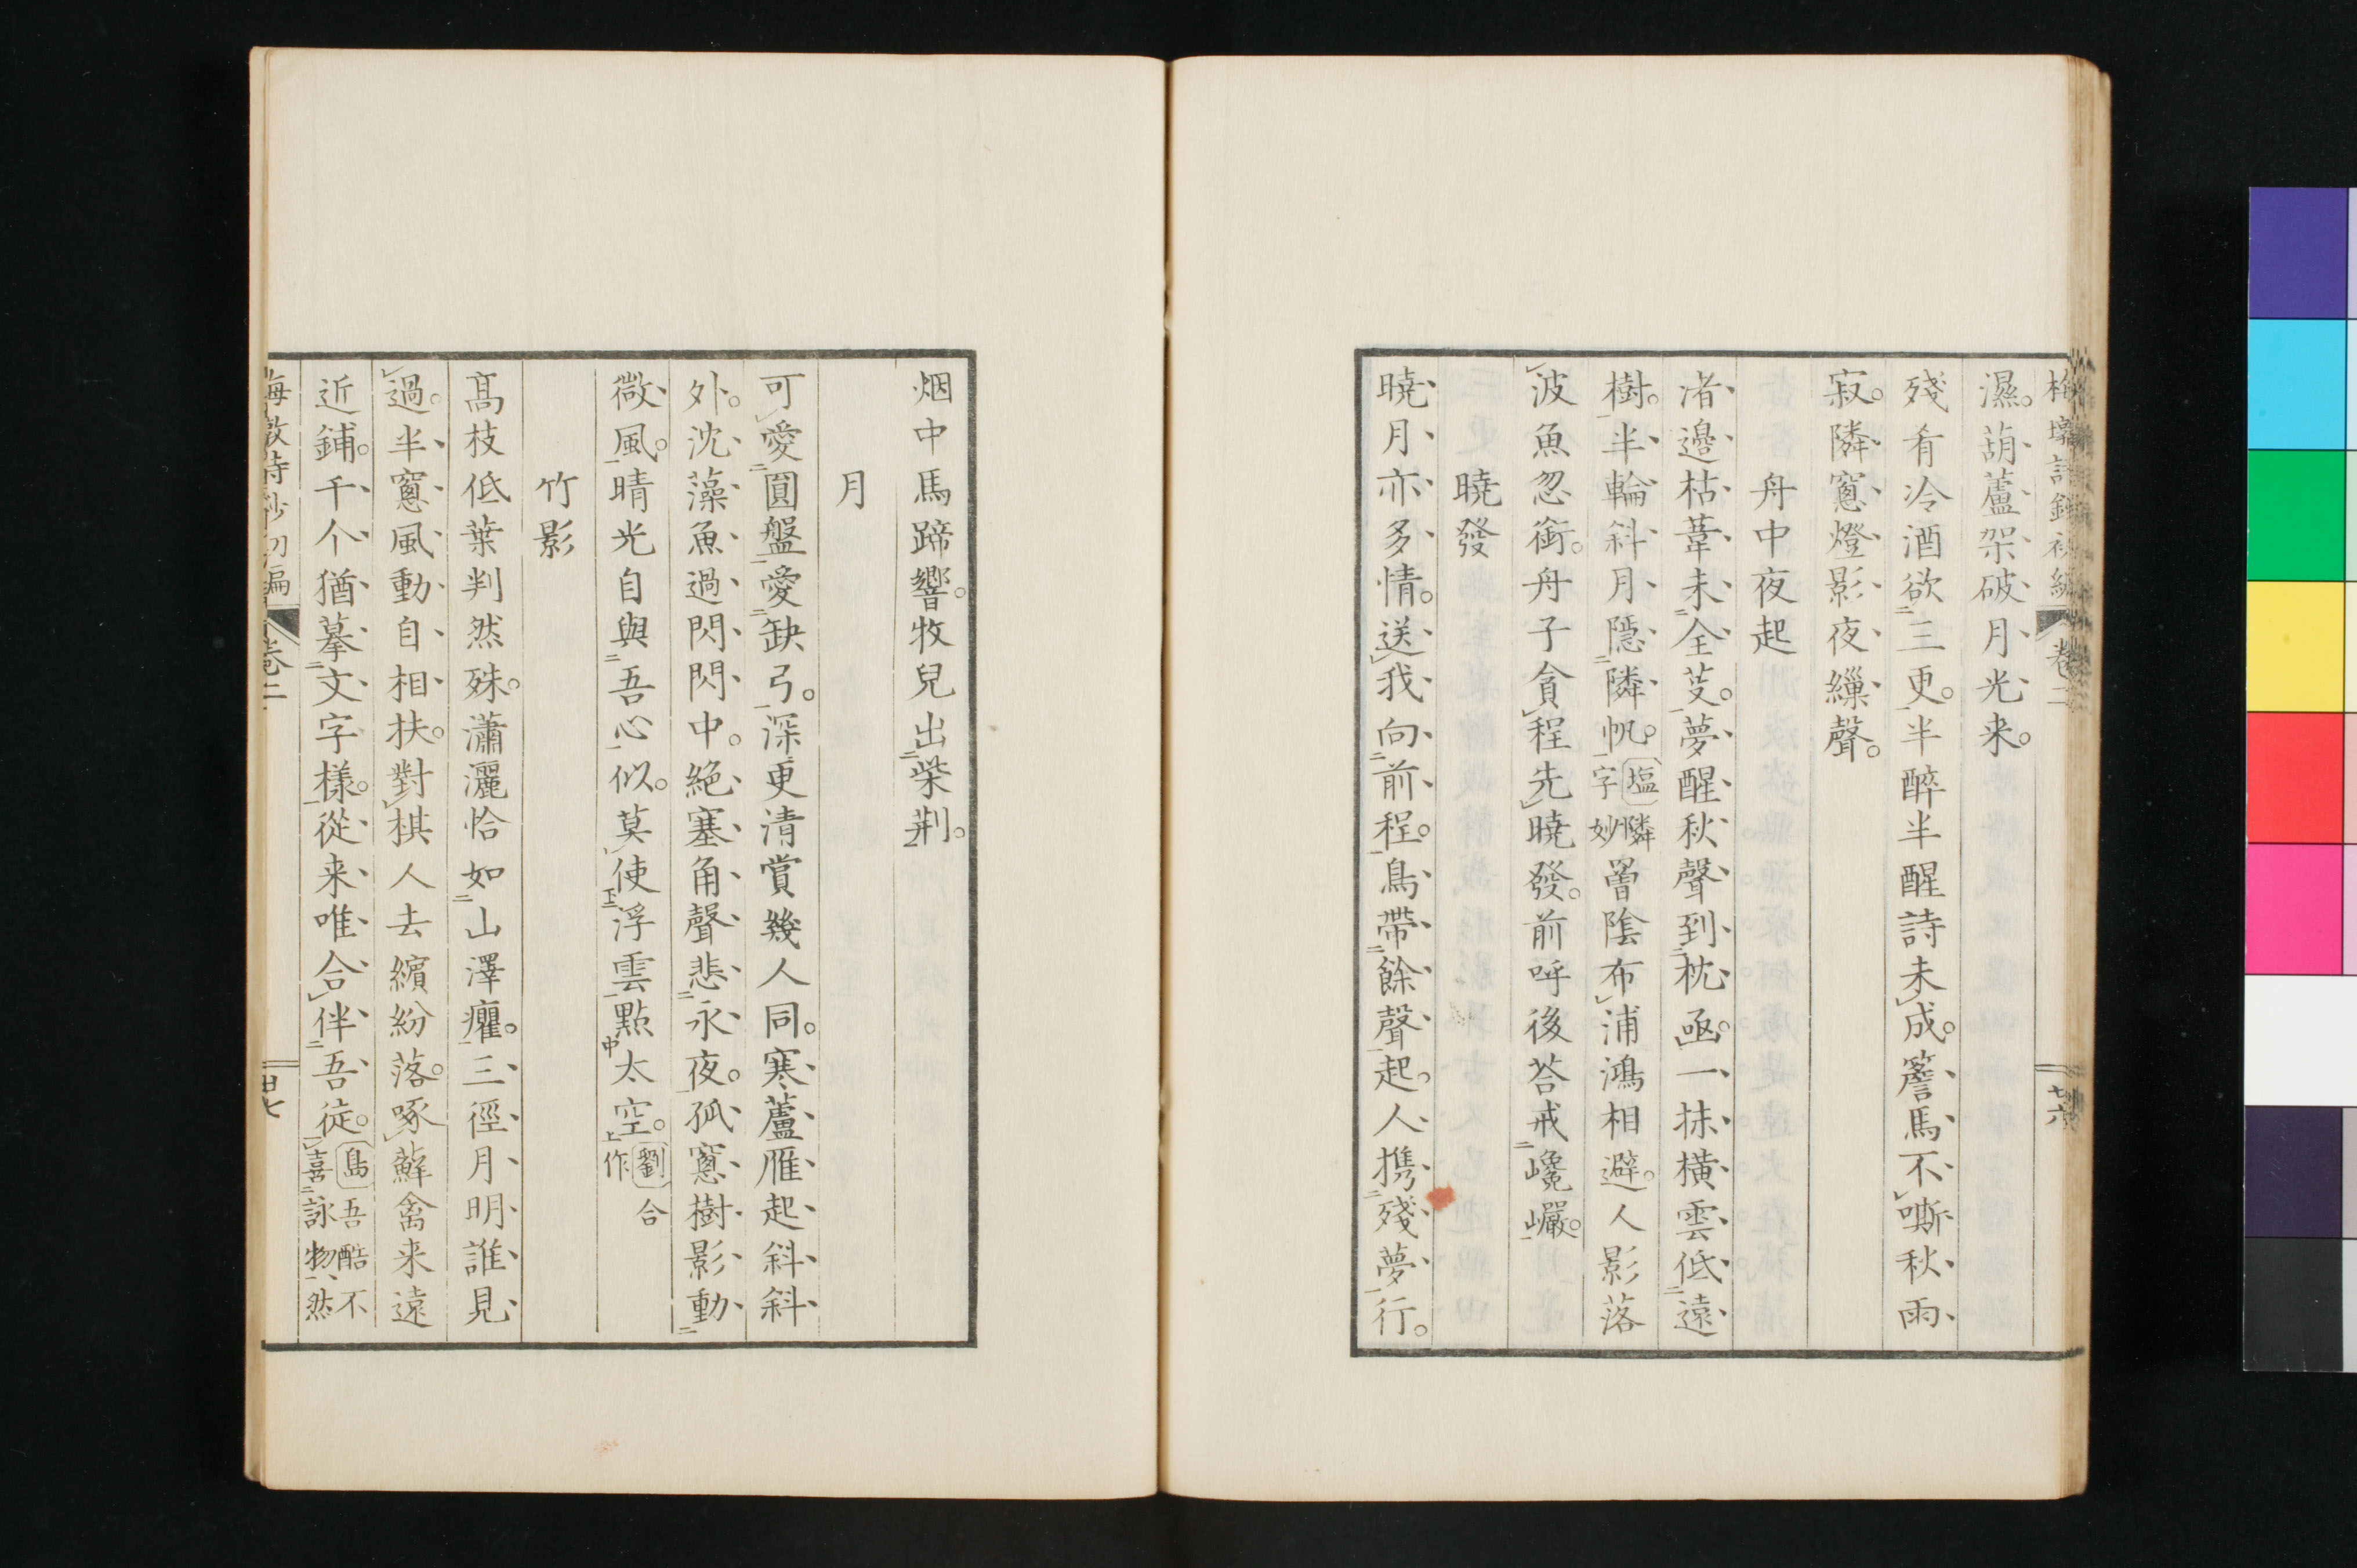 濕。葫蘆架破月光来。
殘肴冷酒欲三更。半醉半醒詩未成。簷馬不嘶秋雨
寂。隣窻燈影夜繅聲。
舟中夜起
渚邉枯葦未全芟。夢醒秋聲到枕凾。一抹横雲低遠
樹。半輪斜月隱隣帆。塩隣字妙曾陰布浦鴻相避。人影落
波魚忽銜。舟子貪程先曉發。前呼後荅戒巉巖。
曉發
曉月亦多情。送我向前程。鳥帶餘聲起。人携殘夢行。
烟中馬蹄響。牧兒出柴荆。
月
可愛圓盤愛缺弓。深更清賞幾人同。寒蘆雁起斜斜
外。沈藻魚過閃閃中。絶塞角聲悲永夜。孤窻樹影動
微風。晴光自與吾心似。莫使浮雲點太空。劉合作
竹影
髙枝低葉判然殊。瀟灑恰如山澤癯。三徑月明誰見
過。半窻風動自相扶。對棋人去繽紛落。啄蘚禽来遠
近鋪。千个猶摹文字樣。從来唯合伴吾徒。島吾酷不喜詠物、然
卷二
廿七